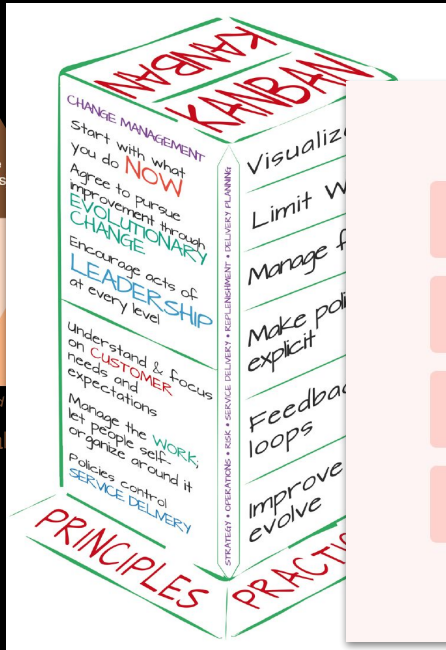 KANBAN
KANBAN
CHANGE MANAGEMENT
Start with what
you do NOW
Agree to pursue
improvement through
EVOLUTIONARY
CHANGE
Encourage acts of
LEADERSHIP
at every level
Understand & focus
on CUSTOMER
needs and
expectations
Manage the WORK;
let people self-
organize around it
Policies control
SERVICE DELIVERY
STRATEGY • OPERATIONS • RISK • SERVICE DELIVERY • REPLENISHMENT • DELIVERY PLANNING
Visualiz
Limit W
Manage f
Make poli
explicit
Feedbac
loops
Improve
evolve
PRINCIPLES
PRACTIC